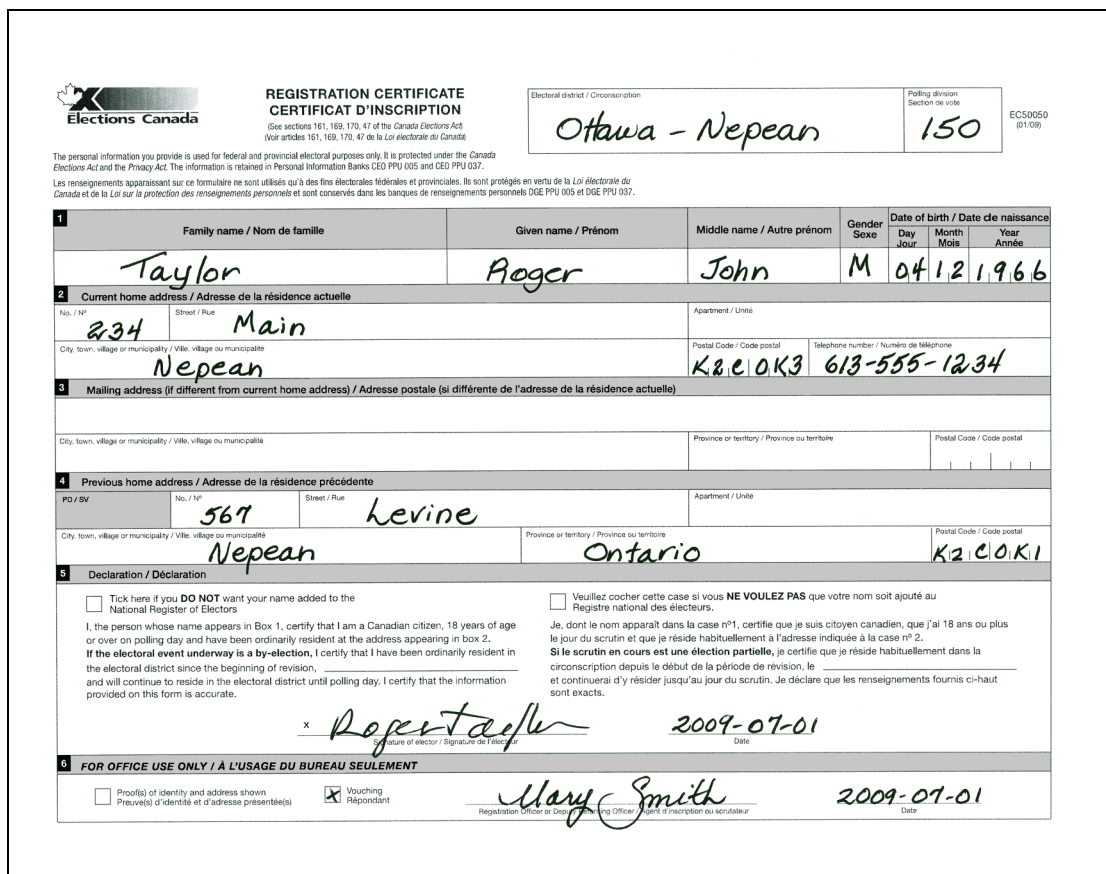 Elections Canada
REGISTRATION CERTIFICATE
CERTIFICAT D'INSCRIPTION
(See sections 161, 169, 170, 47 of the Canada Elections Act)
(Voir articles 161, 169, 170, 47 de la Loi électorale du Canada)
Electoral district / Circonscription
Ottawa - Nepean
Polling division
Section de vote
150
EC50050
(01/09)
The personal information you provide is used for federal and provincial electoral purposes only. It is protected under the Canada
Elections Act and the Privacy Act. The information is retained in Personal Information Banks CEO PPU 005 and CEO PPU 037.
Les renseignements apparaissant sur ce formulaire ne sont utilisés qu'à des fins électorales fédérales et provinciales. Ils sont protégés en vertu de la Loi électorale du
Canada et de la Loi sur la protection des renseignements personnels et sont conservés dans les banques de renseignements personnels DGE PPU 005 et DGE PPU 037.
1 Family name / Nom de famille Given name / Prénom Middle name / Autre prénom Gender Sexe Date of birth / Date de naissance
Day Jour Month Mois Year Année
Taylor Roger John M 04 12 1966
2 Current home address / Adresse de la résidence actuelle
No. / Nº Street / Rue Apartment / Unité
234 Main
City, town, village or municipality / Ville, village ou municipalité Postal Code / Code postal Telephone number / Numéro de téléphone
Nepean K2C0K3 613-555-1234
3 Mailing address (if different from current home address) / Adresse postale (si différente de l'adresse de la résidence actuelle)
City, town, village or municipality / Ville, village ou municipalité Province or territory / Province ou territoire Postal Code / Code postal
4 Previous home address / Adresse de la résidence précédente
PD / SV No. / Nº Street / Rue Apartment / Unité
567 Levine
City, town, village or municipality / Ville, village ou municipalité Province or territory / Province ou territoire Postal Code / Code postal
Nepean Ontario K2C0K1
5 Declaration / Déclaration
Tick here if you DO NOT want your name added to the
National Register of Electors
I, the person whose name appears in Box 1, certify that I am a Canadian citizen, 18 years of age
or over on polling day and have been ordinarily resident at the address appearing in box 2.
If the electoral event underway is a by-election, I certify that I have been ordinarily resident in
the electoral district since the beginning of revision,
and will continue to reside in the electoral district until polling day. I certify that the information
provided on this form is accurate.
Veuillez cocher cette case si vous NE VOULEZ PAS que votre nom soit ajouté au
Registre national des électeurs.
Je, dont le nom apparaît dans la case nº1, certifie que je suis citoyen canadien, que j'ai 18 ans ou plus
le jour du scrutin et que je réside habituellement à l'adresse indiquée à la case nº 2.
Si le scrutin en cours est une élection partielle, je certifie que je réside habituellement dans la
circonscription depuis le début de la période de révision, le
et continuerai d'y résider jusqu'au jour du scrutin. Je déclare que les renseignements fournis ci-haut
sont exacts.
x Roger Taylor 2009-07-01
Signature of elector / Signature de l'électeur Date
6 FOR OFFICE USE ONLY / À L'USAGE DU BUREAU SEULEMENT
Proof(s) of identity and address shown
Preuve(s) d'identité et d'adresse présentée(s)
X Vouching
Répondant
Mary Smith 2009-07-01
Registration Officer or Deputy Returning Officer / Agent d'inscription ou scrutateur Date